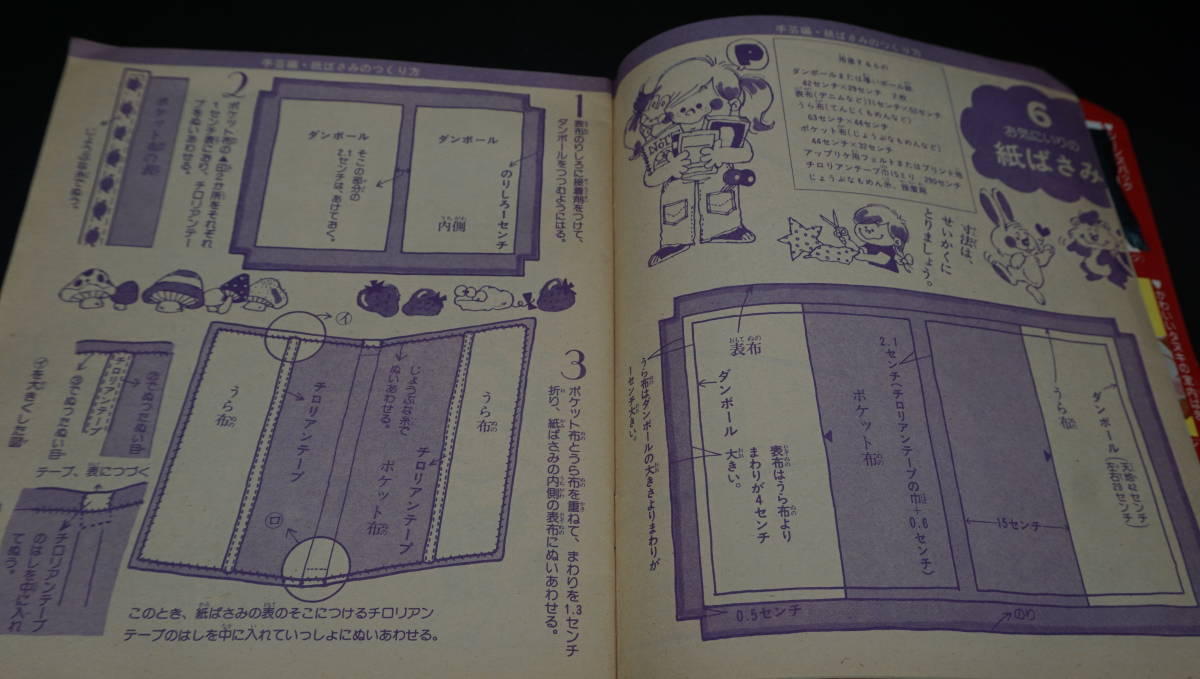 手芸編・紙ばさみのつくり方
6
お気にいりの
紙ばさみ
用意するもの
ダンボールまたは厚いボール紙
42センチ×29センチ 2枚
表布(デニムなど)71センチ×52センチ
うら布(てんじくもめんなど)
63センチ×44センチ
ポケット布(じょうぶなもめんなど)
44センチ×32センチ
アップリケ用フェルトまたはプリント地
チロリアンテープ巾15ミリ、290センチ
じょうぶなもめん糸、接着剤
寸法は、
せいかくに
とりましょう。
ダンボール(天地42センチ
左右29センチ)
うら布
15センチ
2.1センチ(チロリアンテープの巾+0.6センチ)
ポケット布
表布
ダンボール
表布はうら布より
まわりが4センチ
大きい。
うら布はダンボールの大きさよりまわりが
1センチ大きい。
0.5センチ
のり
手芸編・紙ばさみのつくり方
1
表布ののりしろに接着剤をつけて、
ダンボールをつつむようにはる。
ダンボール
のりしろ1センチ
内側
ダンボール
そこの部分の
2.1センチは、あけておく。
2
ポケット布の▲印2か所をそれぞれ
1センチ表におり、チロリアンテー
プをぬいあわせる。
ポケット布の表
3
ポケット布とうら布を重ねて、まわりを1.3センチ
折り、紙ばさみの内側の表布にぬいあわせる。
イ
うら布
チロリアンテープ
じょうぶな糸で
ぬいあわせる。
ポケット布
チロリアンテープ
うら布
ロ
このとき、紙ばさみの表のそこにつけるチロリアン
テープのはしを中に入れていっしょにぬいあわせる。
イを大きくした図
チロリアンテープ
テープ、表につづく
チロリアンテープ
のはしを中に入れ
てぬう。